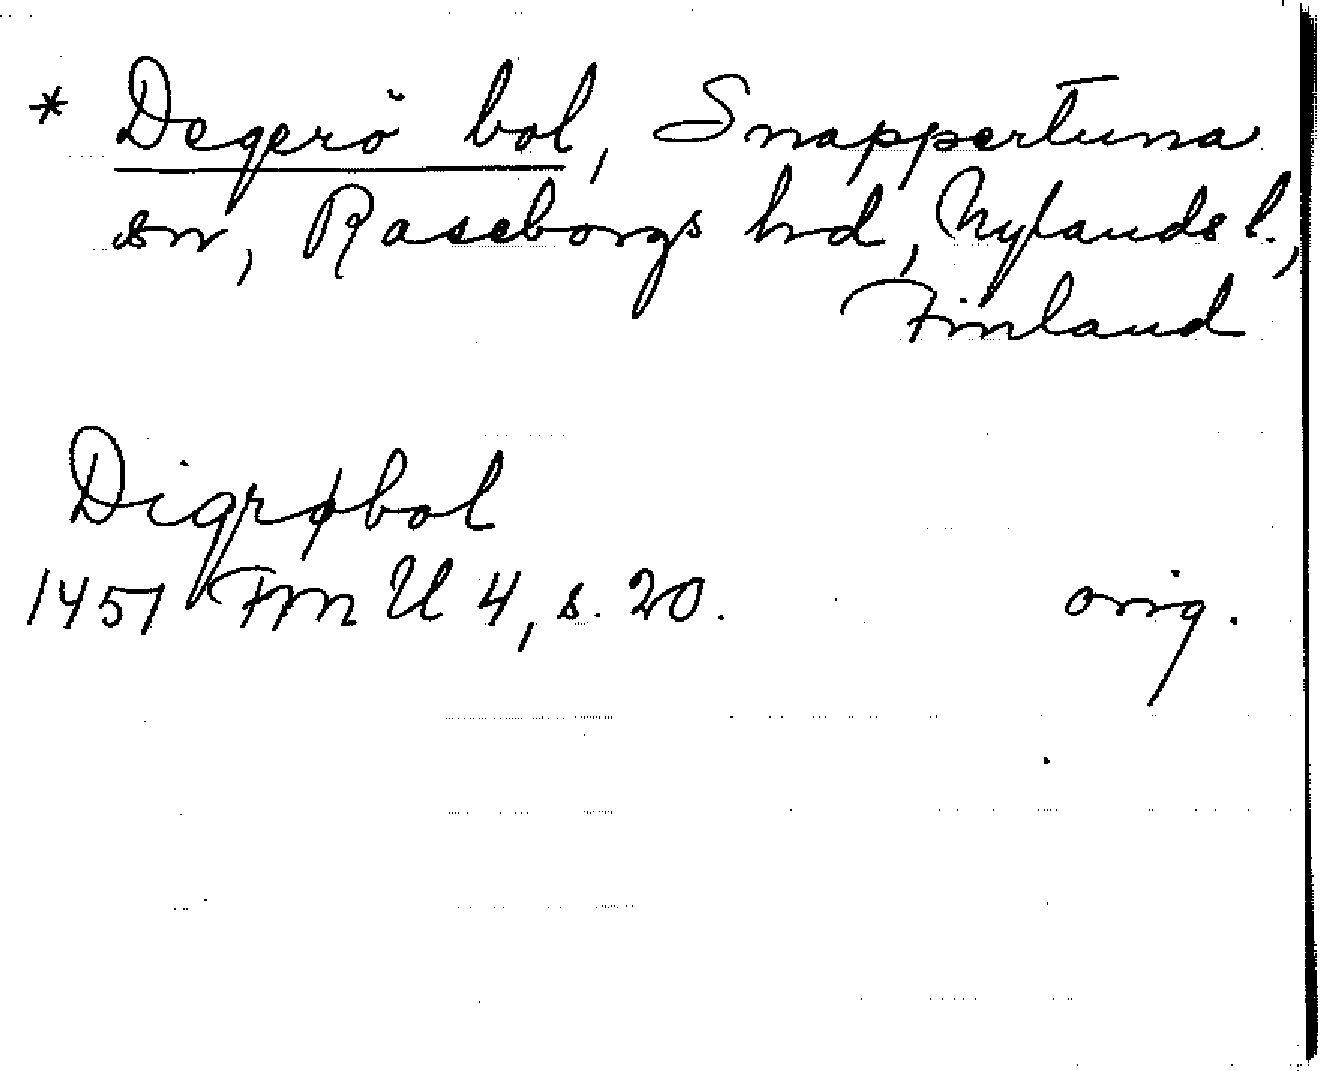 * Degerö bol, Snappertuna
sn, Raseborgs hrd, Nylands l.,
Finland
Digrøbol
1451 FMU 4, s. 20. orig.